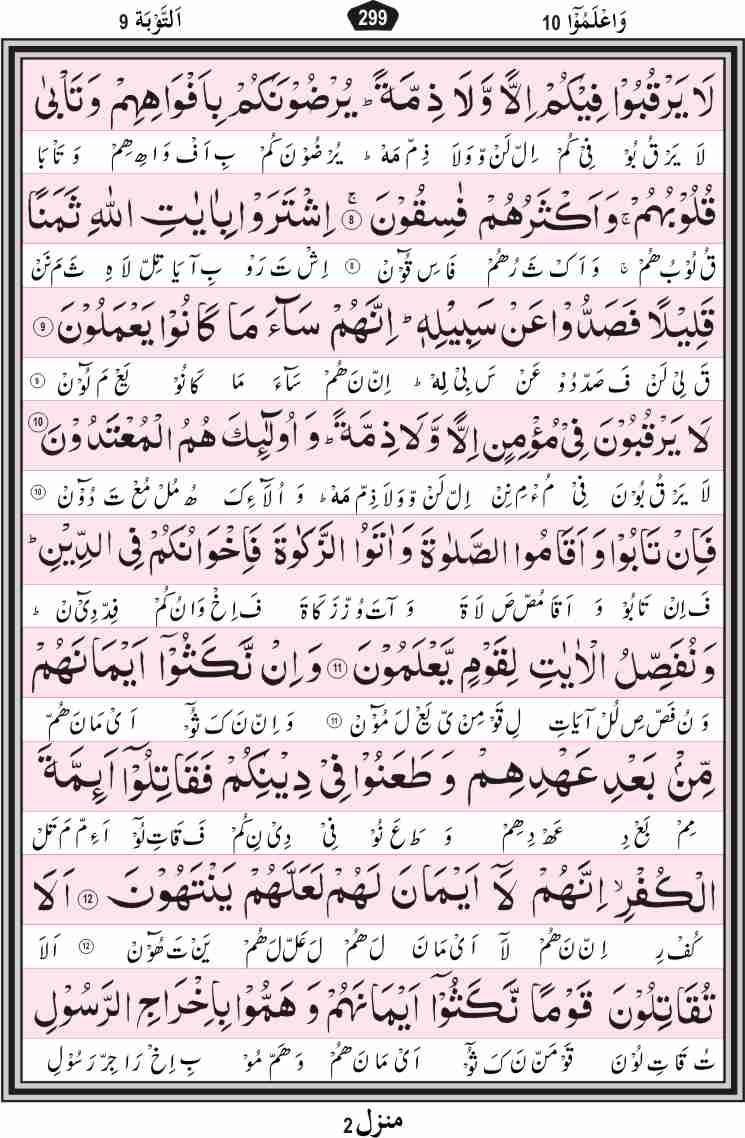 وَاعْلَمُوْٓا 10 299 اَلتَّوْبَة 9
لَا يَرْقُبُوْا فِيْكُمْ اِلًّا وَّلَا ذِمَّةً ؕ يُرْضُوْنَكُمْ بِاَفْوَاهِهِمْ وَتَاْبٰى
لَا يَرْ قُ بُوْ فِىْ كُمْ اِلّ لَنْ وّ وَلَا ذِمّ مَهْ ؕ يُرْ ضُوْ نَ كُمْ بِ اَفْ وَا هِ هِمْ وَ تَاْ بَا
قُلُوْبُهُمْ ۚ وَاَكْثَرُهُمْ فٰسِقُوْنَ ۚ 8 اِشْتَرَوْا بِاٰيٰتِ اللّٰهِ ثَمَنًا
قُ لُوْ بُ هُمْ ۚ وَ اَكْ ثَ رُ هُمْ فَا سِ قُوْٓنْ 8 اِشْ تَ رَوْ بِ آ يَا تِلّ لَا هِ ثَ مَ نَنْ
قَلِيْلًا فَصَدُّوْا عَنْ سَبِيْلِهٖ ؕ اِنَّهُمْ سَآءَ مَا كَانُوْا يَعْمَلُوْنَ 9
قَ لِىْ لَنْ فَ صَدّ دُوْ عَنْ سَ بِىْ لِهْ ؕ اِنّ نَ هُمْ سَآءَ مَا كَا نُوْ يَعْ مَ لُوْٓنْ 9
لَا يَرْقُبُوْنَ فِىْ مُؤْمِنٍ اِلًّا وَّلَا ذِمَّةً ؕ وَ اُولٰٓئِكَ هُمُ الْمُعْتَدُوْنَ 10
لَا يَرْ قُ بُوْنَ فِىْ مُءْ مِ نِنْ اِلّ لَنْ وّ وَلَا ذِمّ مَهْ ؕ وَ اُلَآءِكَ هُ مُلْ مُعْ تَ دُوْٓنْ 10
فَاِنْ تَابُوْا وَ اَقَامُوا الصَّلٰوةَ وَ اٰتَوُا الزَّكٰوةَ فَاِخْوَانُكُمْ فِى الدِّيْنِ ؕ
فَ اِنْ تَا بُوْ وَ اَقَا مُصّ صَ لَا ةَ وَ آتَ وُ زّ زَ كَا ةَ فَ اِخْ وَا نُ كُمْ فِدّ دِىْٓنْ ؕ
وَ نُفَصِّلُ الْاٰيٰتِ لِقَوْمٍ يَّعْلَمُوْنَ 11 وَ اِنْ نَّكَثُوْٓا اَيْمَانَهُمْ
وَ نُ فَصّ صِ لُلْ آيَاتِ لِ قَوْ مِنْ ىّ يَعْ لَ مُوْٓنْ 11 وَ اِنّ نَ كَ ثُوْٓ اَىْ مَا نَ هُمّ
مِّنْ بَعْدِ عَهْدِهِمْ وَ طَعَنُوْا فِىْ دِيْنِكُمْ فَقَاتِلُوْٓا اَئِمَّةَ
مِمْ بَعْ دِ عَهْ دِ هِمْ وَ طَ عَ نُوْ فِىْ دِىْ نِ كُمْ فَ قَا تِ لُوْٓ اَءِمّ مَ تَلْ
الْكُفْرِ ۙ اِنَّهُمْ لَآ اَيْمَانَ لَهُمْ لَعَلَّهُمْ يَنْتَهُوْنَ 12 اَلَا
كُفْ رِ اِنّ نَ هُمْ لَآ اَىْ مَا نَ لَ هُمْ لَ عَلّ لَ هُمْ يَنْ تَ هُوْٓنْ 12 اَلَا
تُقَاتِلُوْنَ قَوْمًا نَّكَثُوْٓا اَيْمَانَهُمْ وَ هَمُّوْا بِاِخْرَاجِ الرَّسُوْلِ
تُ قَا تِ لُوْنَ قَوْ مَنّ نَ كَ ثُوْٓ اَىْ مَا نَ هُمْ وَ هَمّ مُوْ بِ اِخْ رَا جِرّ رَ سُوْلِ
منزل 2